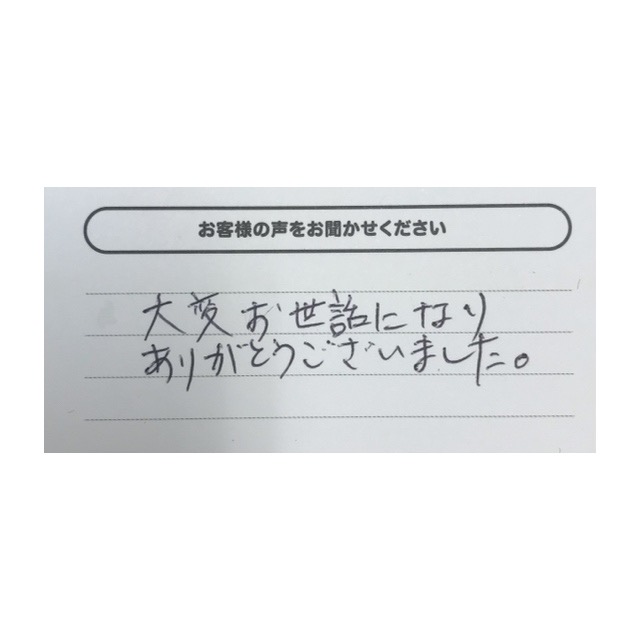 お客様の声をお聞かせください
大変お世話になり
ありがとうございました。